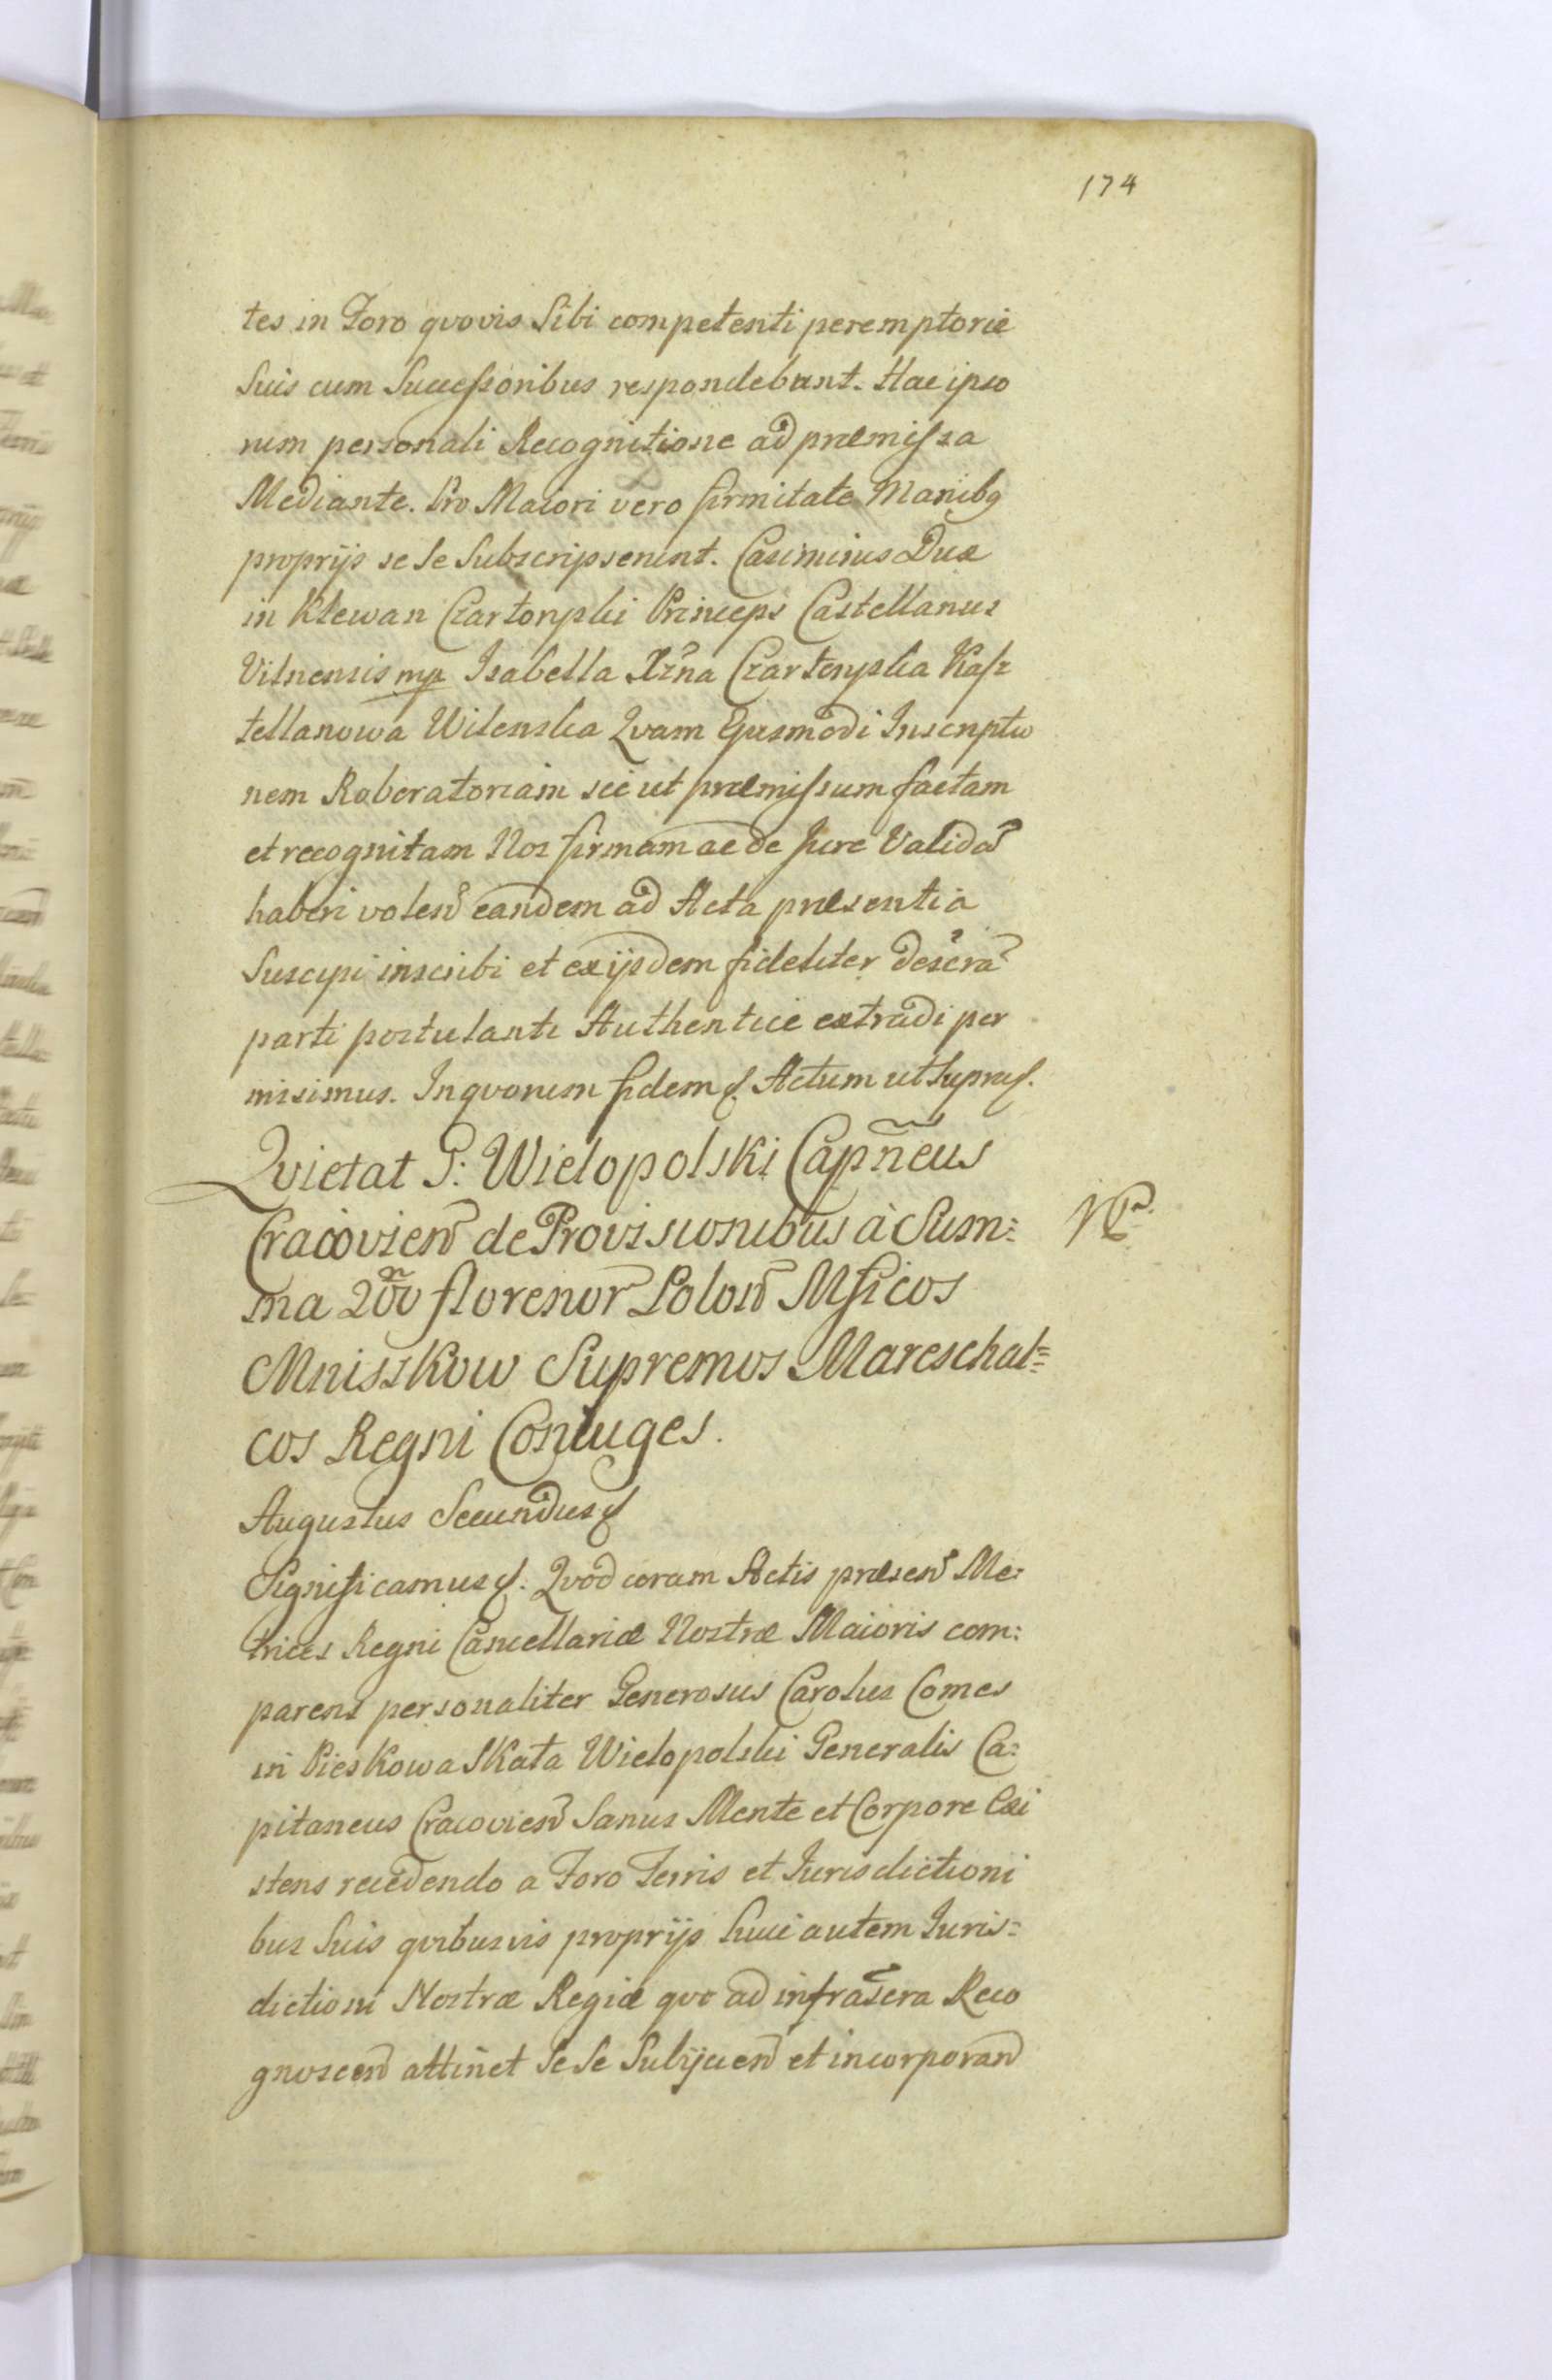 174
tes in Foro qvovis Sibi competenti peremptorie
Suis cum Successoribus respondebunt. Hac ipso
rum personali Recognitione ad præmissa
Mediante. Pro Maiori vero firmitate Manibq
proprijs se se Subscripserunt. Casimirus Dux
in Klewan Czartoryski Princeps Castellanus
Vilnensis mp Isabella Xżna Czartoryska Kasz
tellanowa Wilenska Qvam Ejusmodi Inscriptio
nem Roboratoriam sic ut præmissum factam
et recognitam Nos firmam ac de Jure Validã
haberi volen̄ eandem ad Acta præsentia
Suscipi inscribi et ex ijsdem fideliter descrã
parti postulanti Authentice extradi per
misimus. In qvorum fidem &. Actum ut Supra &.
Qvietat G: Wielopolski Capn̄eus
Cracovien̄ de Provisionibus à Sum:
ma 200 florenor̄ Polon̄ Mficos
Mniszkow Supremos Mareschal=
cos Regni Coniuges.
NB.
Augustus Secundus &
Significamus &. Qvod coram Actis præsen̄ Me:
trices Regni Cancellariæ Nostræ Maioris com:
parens personaliter Generosus Carolus Comes
in Pieskowa Skała Wielopolski Generalis Ca:
pitaneus Cracovien̄ Sanus Mente et Corpore Exi
stens recedendo a Foro Terris et Jurisdictioni
bus Suis qvibusvis proprijs huic autem Juris=
dictioni Nostræ Regiæ qvo ad infrascra Reco
gnoscen̄ attinet Se Se Subijcien̄ et incorporan̄